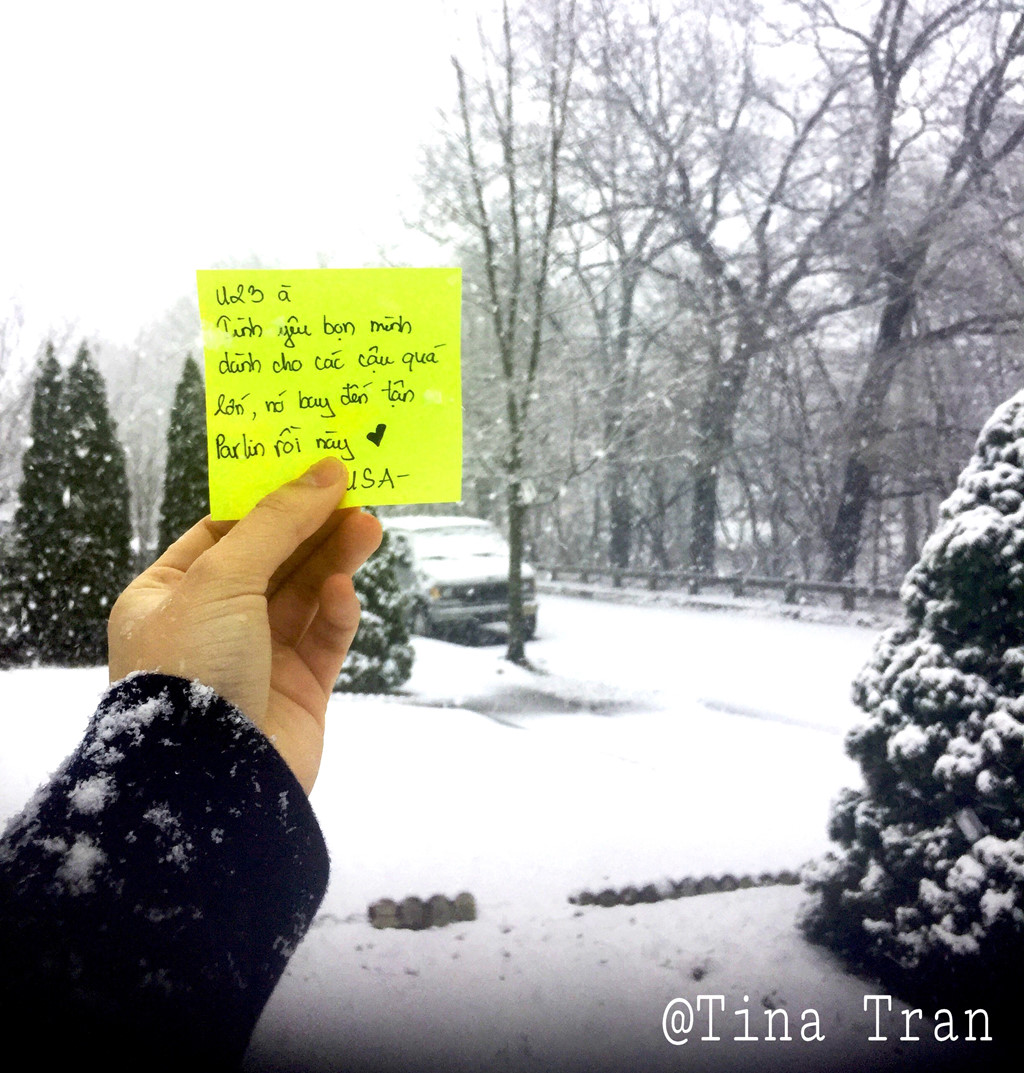 U23 à
Tình yêu bọn mình
dành cho các cậu quá
lớn, nó bay đến tận
Parlin rồi này ♥
USA-
@Tina Tran